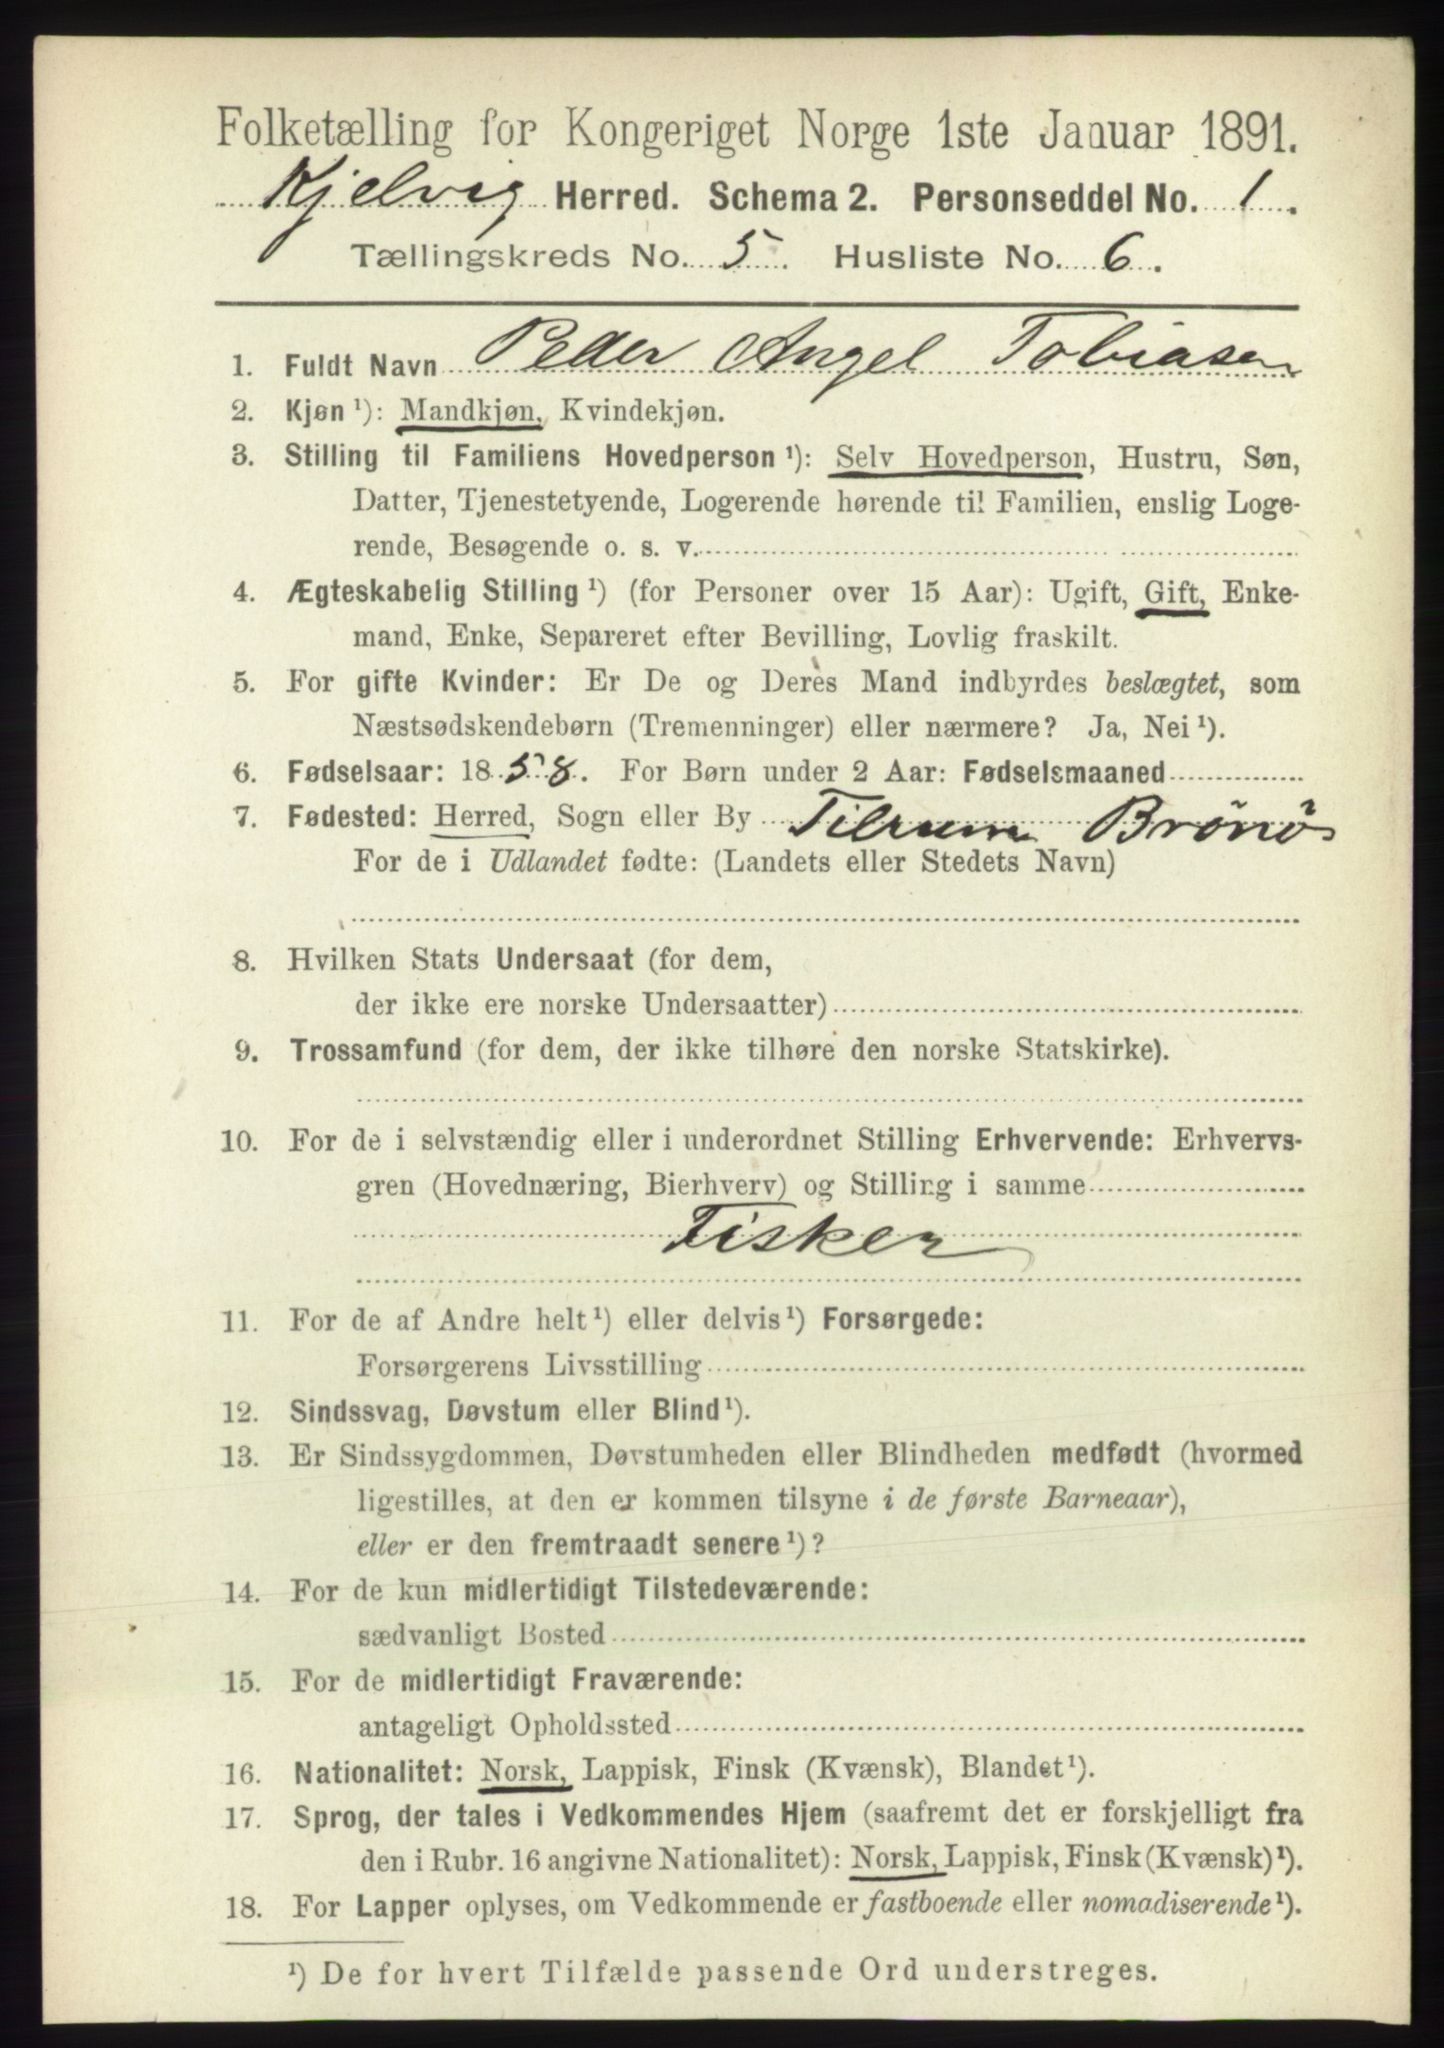 Folketælling for Kongeriget Norge 1ste Januar 1891.
Kjelvig Herred. Schema 2. Personseddel No. 1.
Tællingskreds No. 5. Husliste No. 6.
1. Fuldt Navn Peder Angel Tobiasen
2. Kjøn ¹): Mandkjøn, Kvindekjøn.
3. Stilling til Familiens Hovedperson ¹): Selv Hovedperson, Hustru, Søn,
Datter, Tjenestetyende, Logerende hørende til Familien, enslig Loge-
rende, Besøgende o. s. v.
4. Ægteskabelig Stilling ¹) (for Personer over 15 Aar): Ugift, Gift, Enke-
mand, Enke, Separeret efter Bevilling, Lovlig fraskilt.
5. For gifte Kvinder: Er De og Deres Mand indbyrdes beslægtet, som
Næstsødskendebørn (Tremenninger) eller nærmere? Ja, Nei ¹).
6. Fødselsaar: 1858. For Børn under 2 Aar: Fødselsmaaned
7. Fødested: Herred, Sogn eller By Tilrum Brönö
For de i Udlandet fødte: (Landets eller Stedets Navn)
8. Hvilken Stats Undersaat (for dem,
der ikke ere norske Undersaatter)
9. Trossamfund (for dem, der ikke tilhøre den norske Statskirke).
10. For de i selvstændig eller i underordnet Stilling Erhvervende: Erhvervs-
gren (Hovednæring, Bierhverv) og Stilling i samme
Fisker
11. For de af Andre helt ¹) eller delvis ¹) Forsørgede:
Forsørgerens Livsstilling
12. Sindssvag, Døvstum eller Blind ¹).
13. Er Sindssygdommen, Døvstumheden eller Blindheden medfødt (hvormed
ligestilles, at den er kommen tilsyne i de første Barneaar),
eller er den fremtraadt senere ¹)?
14. For de kun midlertidigt Tilstedeværende:
sædvanligt Bosted
15. For de midlertidigt Fraværende:
antageligt Opholdssted
16. Nationalitet: Norsk, Lappisk, Finsk (Kvænsk), Blandet ¹).
17. Sprog, der tales i Vedkommendes Hjem (saafremt det er forskjelligt fra
den i Rubr. 16 angivne Nationalitet): Norsk, Lappisk, Finsk (Kvænsk) ¹).
18. For Lapper oplyses, om Vedkommende er fastboende eller nomadiserende ¹).
¹) De for hvert Tilfælde passende Ord understreges.